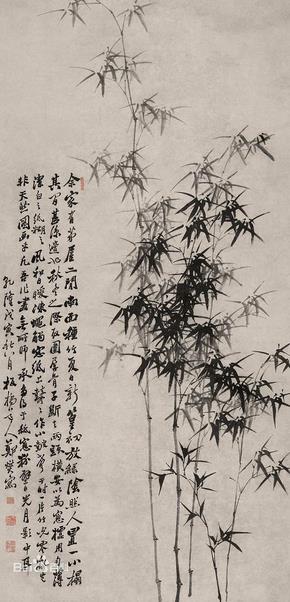 余家有茅屋二間南面種竹夏日新篁初放綠陰照人置一小榻
其中甚涼適也秋冬之際取圍屏骨子斷去兩頭橫安以為窗櫺用勻薄
潔白之紙糊之風和日暖凍蠅觸窗紙上鼕鼕作小鼓聲于時一片竹影零亂豈
非天然圖畫乎凡吾畫竹無所師承多得於紙窗粉壁日光月影中耳
乾隆戊寅 月板橋 鄭燮